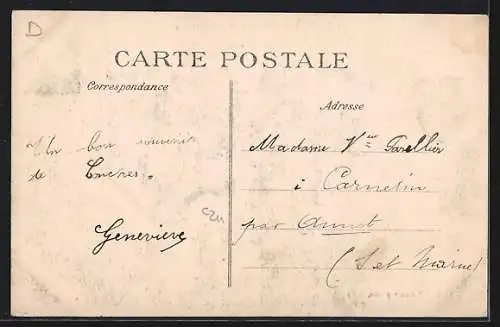 D
CARTE POSTALE
Correspondance
Adresse
Un bon souvenir
de
Geneviève
Madame Vve
à Carnetin
par Annet
(S et Marne)